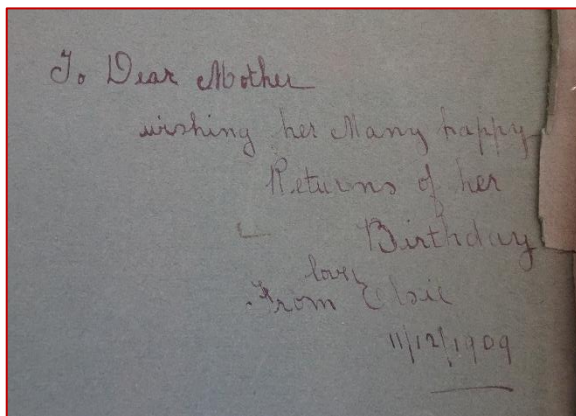 To Dear Mother
wishing her Many happy
Returns of her
Birthday
love
From Elsie
11/12/1909